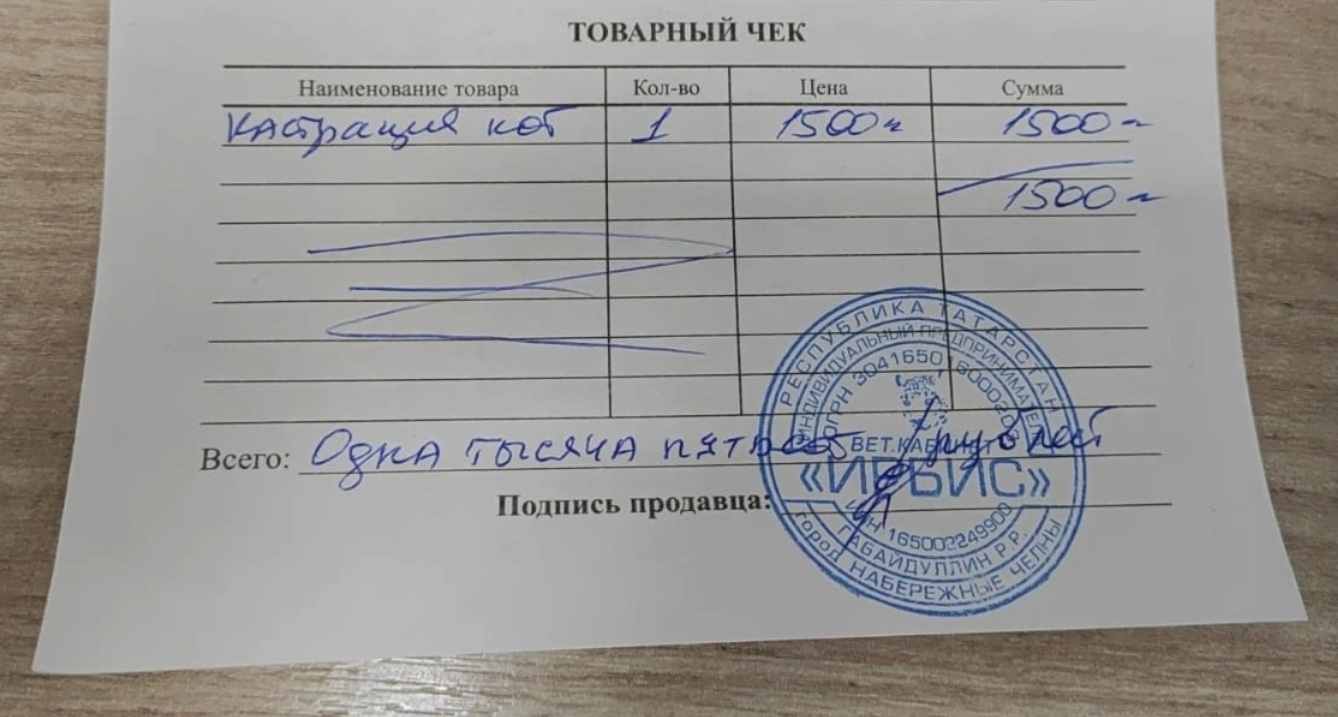 ТОВАРНЫЙ ЧЕК
Наименование товара Кол-во Цена Сумма
Кастрация кот 1 1500= 1500=
1500=
Всего: Одна тысяча пятьсот рублей
Подпись продавца:
РЕСПУБЛИКА ТАТАРСТАН
ИНДИВИДУАЛЬНЫЙ ПРЕДПРИНИМАТЕЛЬ
ОГРН
ВЕТ.КАБИНЕТ
«ИРБИС»
ИНН 165002249900
ГАБАЙДУЛЛИН Р.Р.
ГОРОД НАБЕРЕЖНЫЕ ЧЕЛНЫ